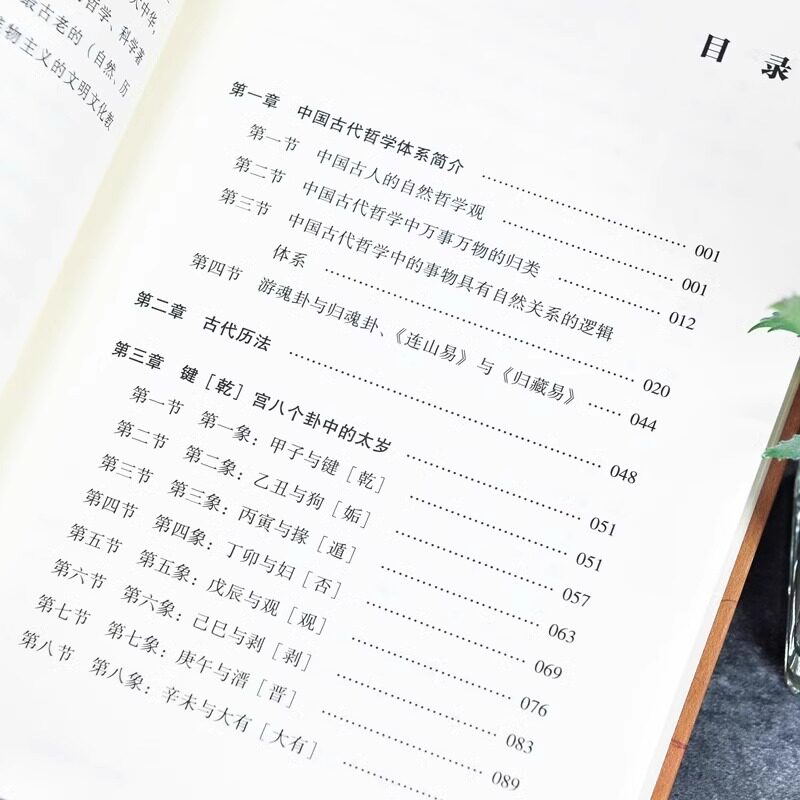 大中华,
哲学、科学著
最古老的（自然、历
物主义的文明文化教
目 录
第一章 中国古代哲学体系简介 …… 001
第一节 中国古人的自然哲学观 …… 001
第二节 中国古代哲学中万事万物的归类 …… 012
第三节 中国古代哲学中的事物具有自然关系的逻辑
体系 …… 020
第四节 游魂卦与归魂卦、《连山易》与《归藏易》 …… 044
第二章 古代历法 …… 048
第三章 键［乾］宫八个卦中的太岁 …… 051
第一节 第一象：甲子与键［乾］ …… 051
第二节 第二象：乙丑与狗［姤］ …… 057
第三节 第三象：丙寅与掾［遁］ …… 063
第四节 第四象：丁卯与妇［否］ …… 069
第五节 第五象：戊辰与观［观］ …… 076
第六节 第六象：己巳与剥［剥］ …… 083
第七节 第七象：庚午与溍［晋］ …… 089
第八节 第八象：辛未与大有［大有］ ……